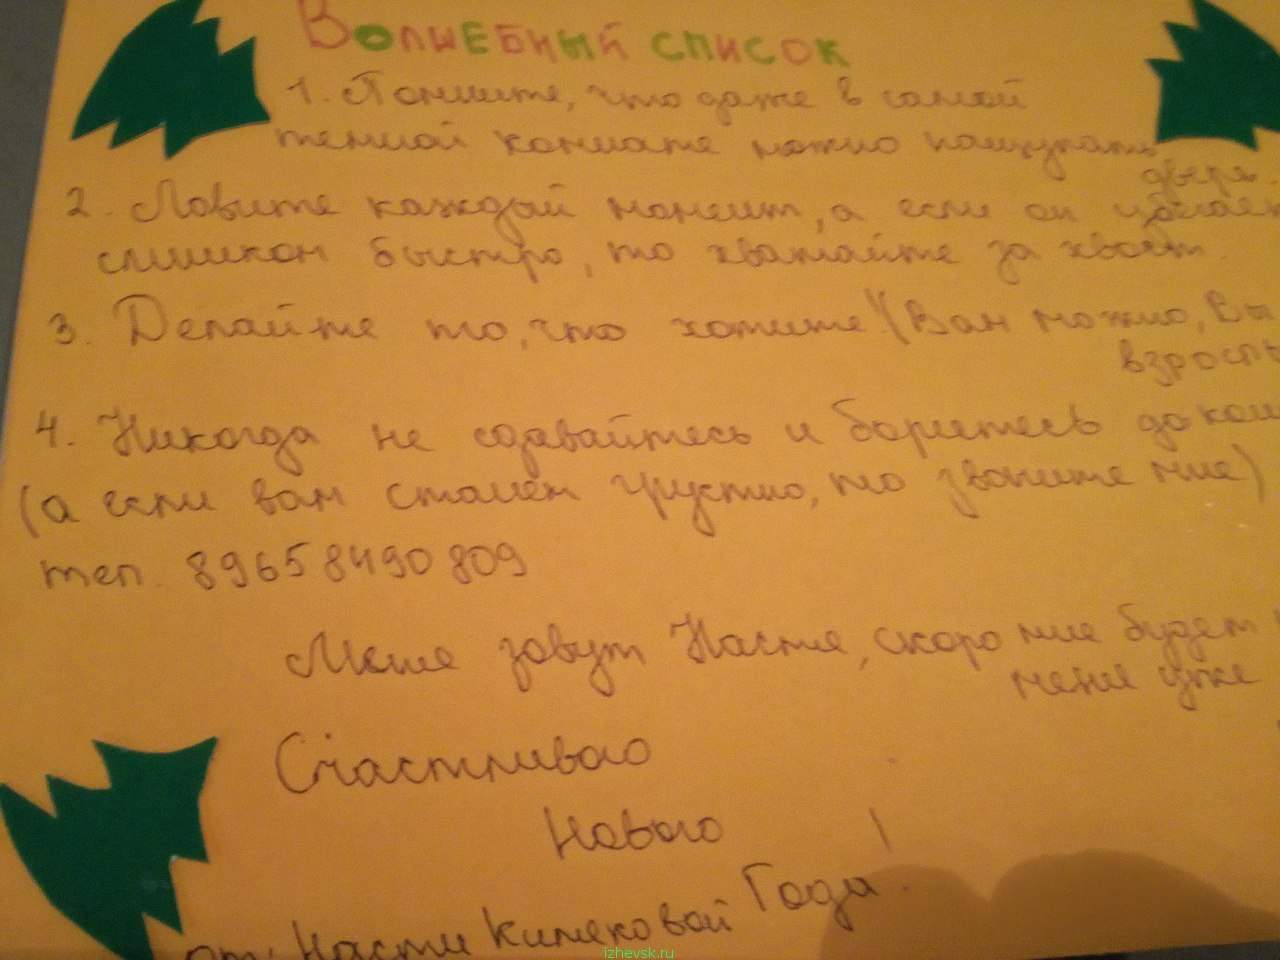 Волшебный список
1. Помните, что даже в самой
темной комнате можно нащупать
дверь.
2. Ловите каждый момент, а если он убегает
слишком быстро, то хватайте за хвост.
3. Делайте то, что хотите! (Вам можно, Вы
взрослы
4. Никогда не сдавайтесь и боритесь до кон
(а если вам станет грустно, то звоните мне)
тел. 89658490809
Меня зовут Настя, скоро мне будет
меня уже
Счастливого
Нового
Года!
от: Насти
izhevsk.ru